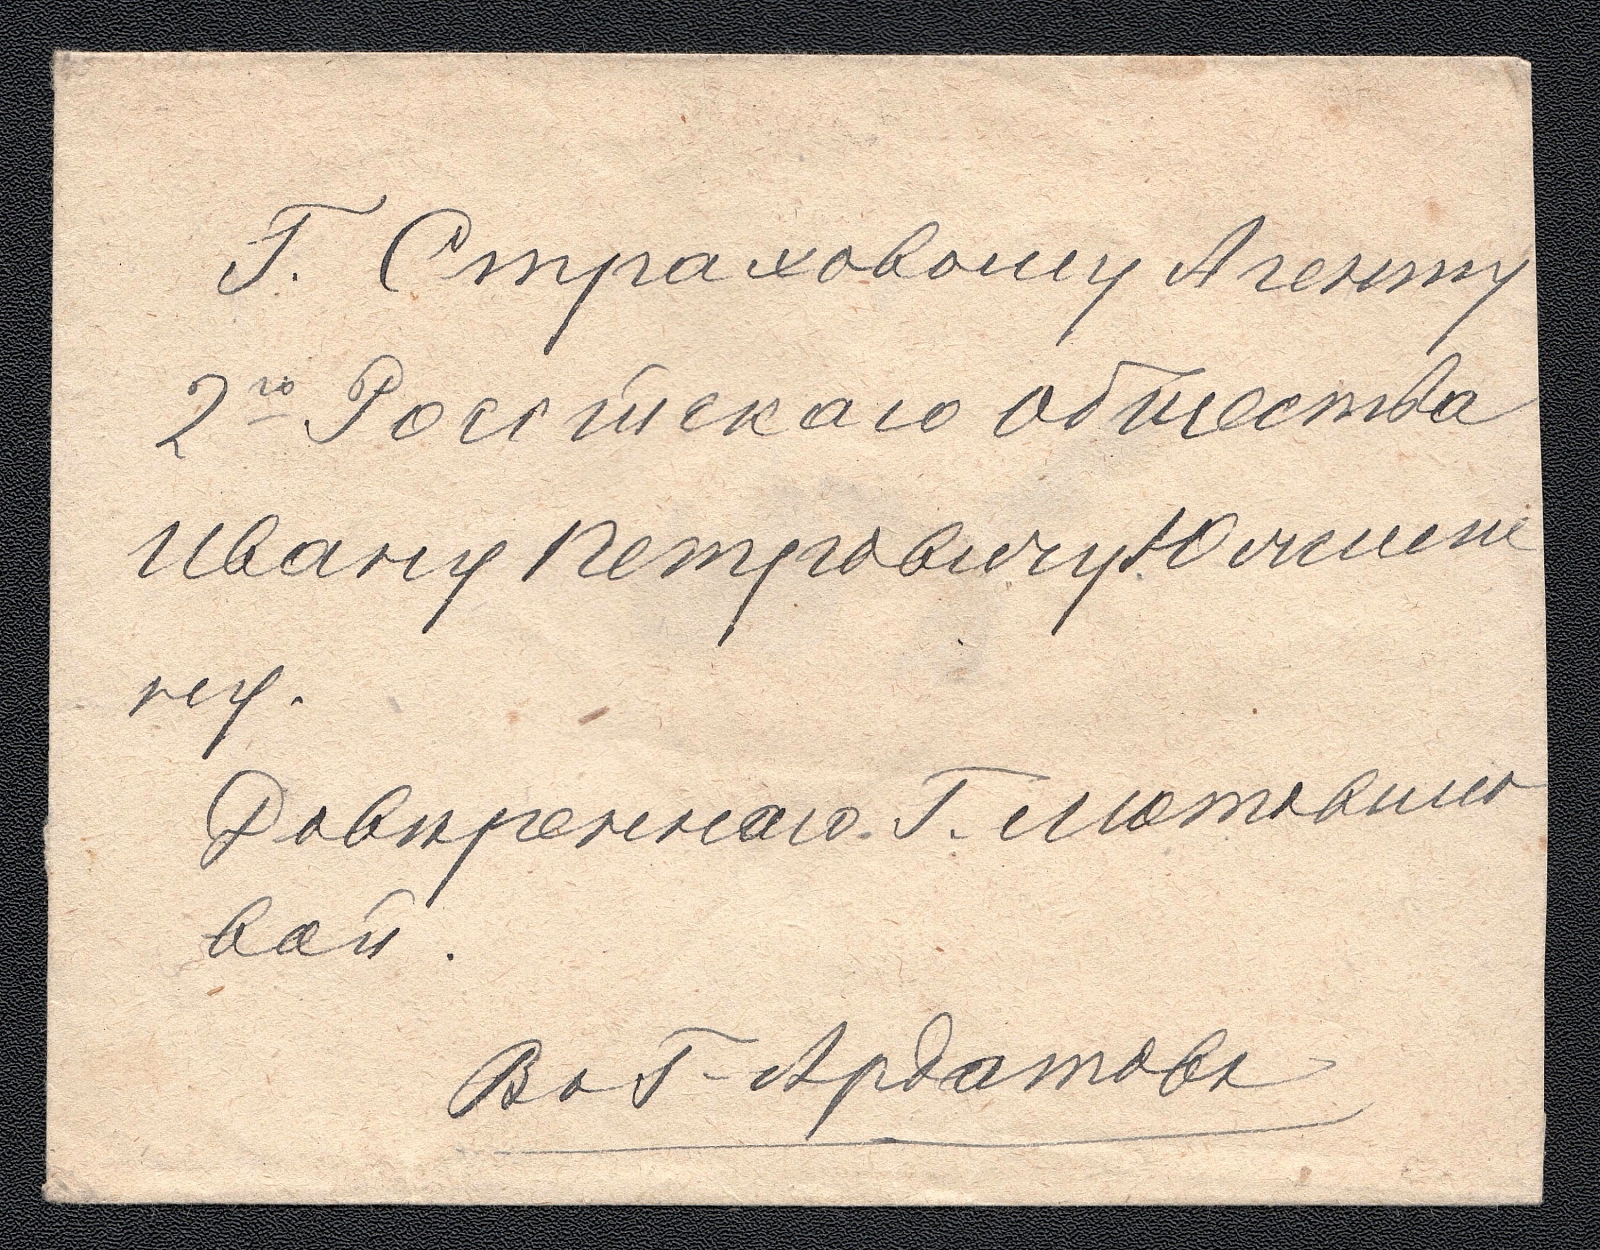 Г. Страховому Агенту
2го Россійскаго общества
Ивану Петровичу
ну.
Довѣреннаго. Г. Мотовило
вай.
Во Г. Ардатовъ